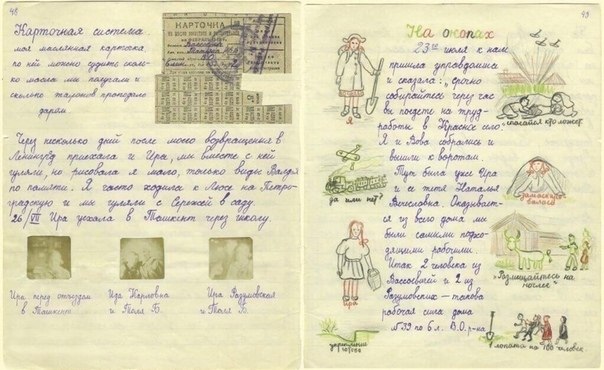 48
Карточная система.
моя маслянная карточка,
по ней можно судить сколь-
ко масла мы поедали и
сколько талонов пропадало
даром.
КАРТОЧКА
Через несколько дней после моего возвращения в
Ленинград приехала и Ира, мы вместе с ней
гуляли, но рисовала я мало, только виды Валдая
по памяти. Я часто ходила к Люсе на Петро-
градскую и мы гуляли с Сережей в саду.
26/VII Ира уехала в Ташкент через школу.
Ира перед отъездом
в Ташкент
Ида Карловна
и Толя В.
Ира Разумовская
и Толя В.
На окопах
23го июля к нам
пришла управдомша
и сказала: „срочно
собирайтесь через час
вы поедете на труд-
работы в Красное село.
Я и Вова собрались и
вышли к воротам
Тут была уже Ира
и ее тетя Наталья
Вячеславна. Оказывает-
ся из всего дома мы
были самыми подхо-
дящими рабочими.
Итак 2 человека из
и 2 из
Разумовских – такова
рабочая сила дома
№39 по 6 л. В.О. р-на
Я
да или нет?
Ира
укрепление
„спасайся кто может"
замаскиро-
валась
„Размещайтесь на
ночлег"
лопата на 100 человек